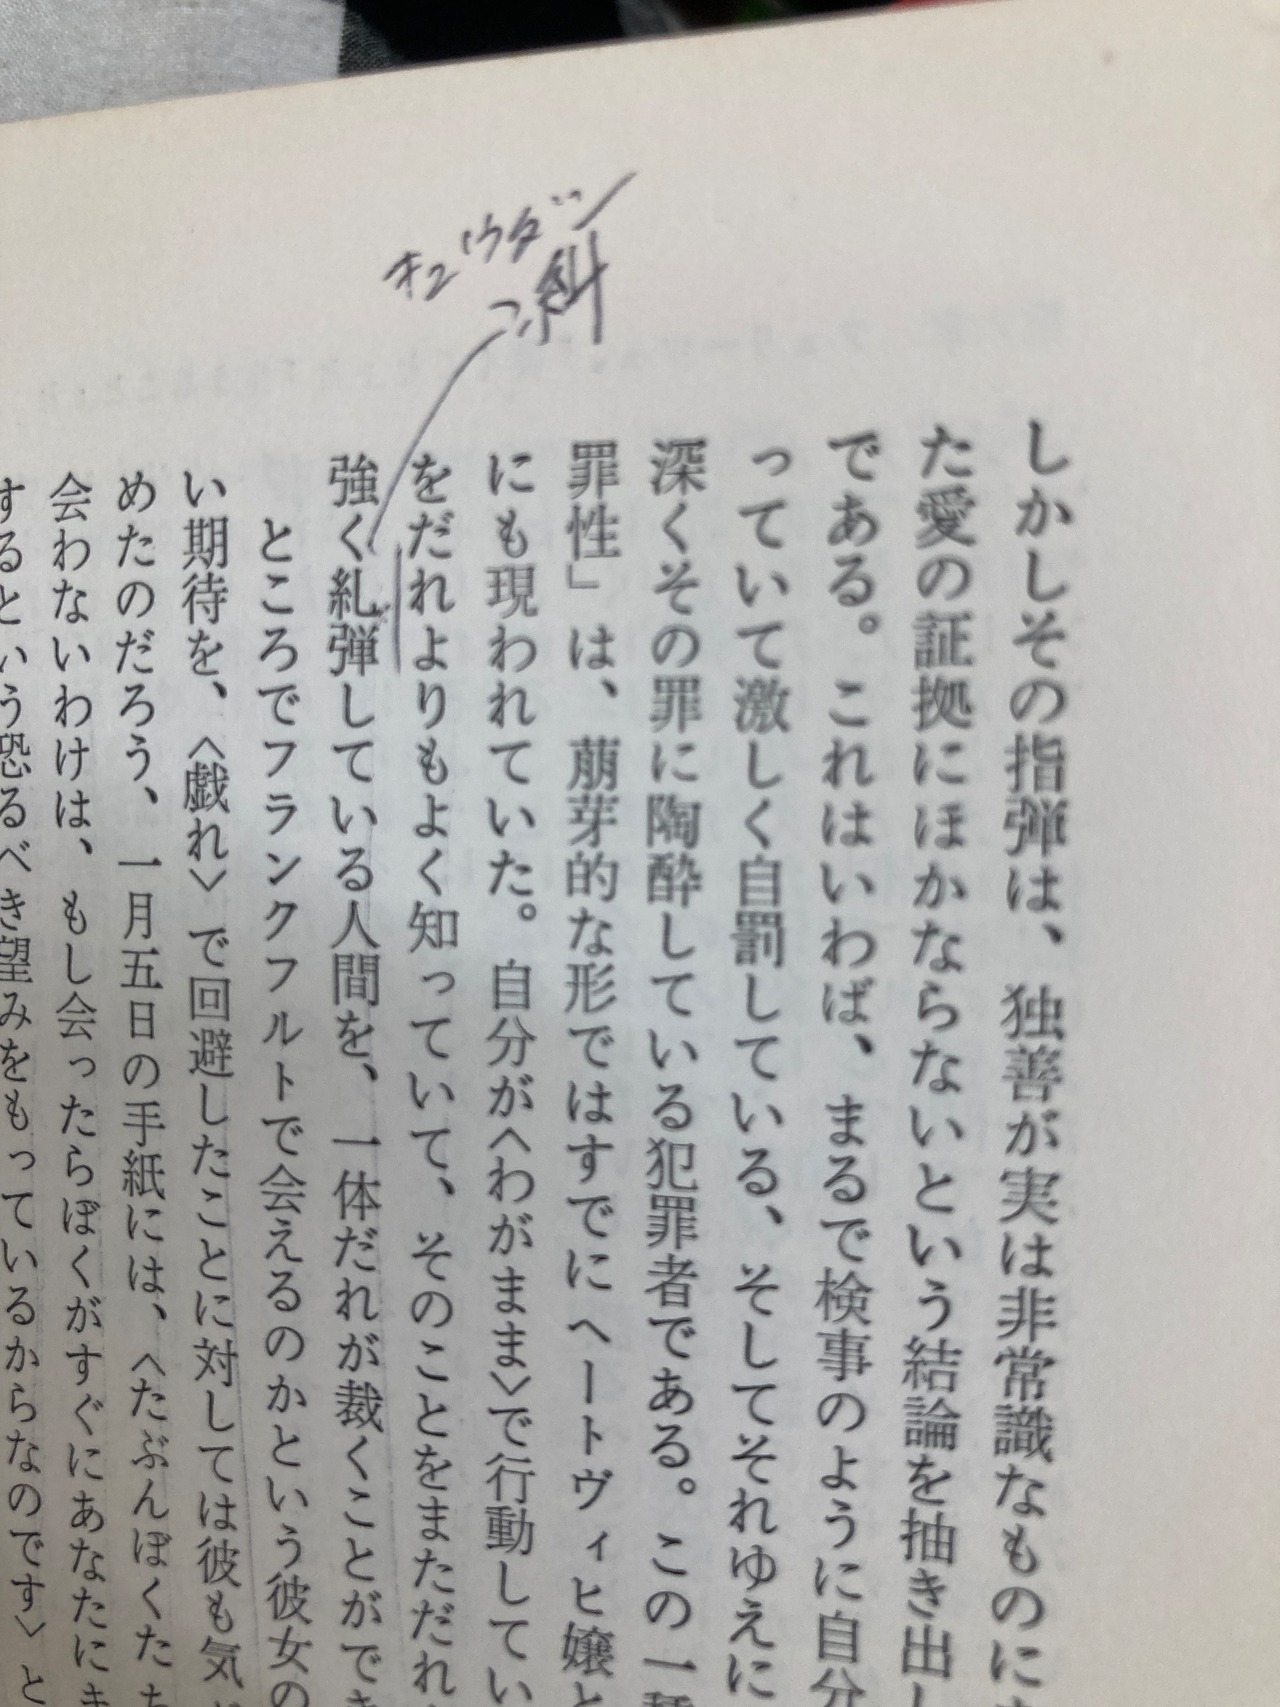 キュウダン
糾
しかしその指弾は、独善が実は非常識なものに
た愛の証拠にほかならないという結論を抽き出し
である。これはいわば、まるで検事のように自分
っていて激しく自罰している、そしてそれゆえに
深くその罪に陶酔している犯罪者である。この一種
罪性」は、萠芽的な形ではすでにヘートヴィヒ嬢と
にも現われていた。自分が〈わがまま〉で行動してい
をだれよりもよく知っていて、そのことをまただれ
強く糺弾している人間を、一体だれが裁くことができ
ところでフランクフルトで会えるのかという彼女の
い期待を、〈戯れ〉で回避したことに対しては彼も気
めたのだろう、一月五日の手紙には、〈たぶんぼくたち
会わないわけは、もし会ったらぼくがすぐにあなたにま
するという恐るべき望みをもっているからなのです〉と